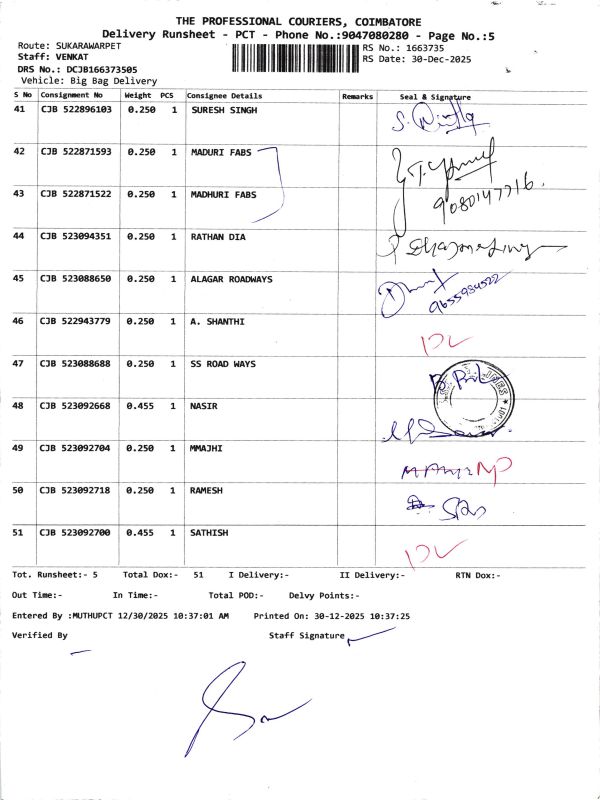 THE PROFESSIONAL COURIERS, COIMBATORE
Delivery Runsheet - PCT - Phone No.:9047080280 - Page No.:5
Route: SUKARAWARPET
RS No.: 1663735
Staff: VENKAT
RS Date: 30-Dec-2025
DRS No.: DCJB166373505
Vehicle: Big Bag Delivery
S No Consignment No Weight PCS Consignee Details Remarks Seal & Signature
41 CJB 522896103 0.250 1 SURESH SINGH
42 CJB 522871593 0.250 1 MADURI FABS
43 CJB 522871522 0.250 1 MADHURI FABS
9080147716.
44 CJB 523094351 0.250 1 RATHAN DIA
45 CJB 523088650 0.250 1 ALAGAR ROADWAYS
9655984522
46 CJB 522943779 0.250 1 A. SHANTHI
47 CJB 523088688 0.250 1 SS ROAD WAYS
48 CJB 523092668 0.455 1 NASIR
49 CJB 523092704 0.250 1 MMAJHI
50 CJB 523092718 0.250 1 RAMESH
51 CJB 523092700 0.455 1 SATHISH
Tot. Runsheet:- 5 Total Dox:- 51 I Delivery:- II Delivery:- RTN Dox:-
Out Time:- In Time:- Total POD:- Delvy Points:-
Entered By :MUTHUPCT 12/30/2025 10:37:01 AM Printed On: 30-12-2025 10:37:25
Verified By Staff Signature